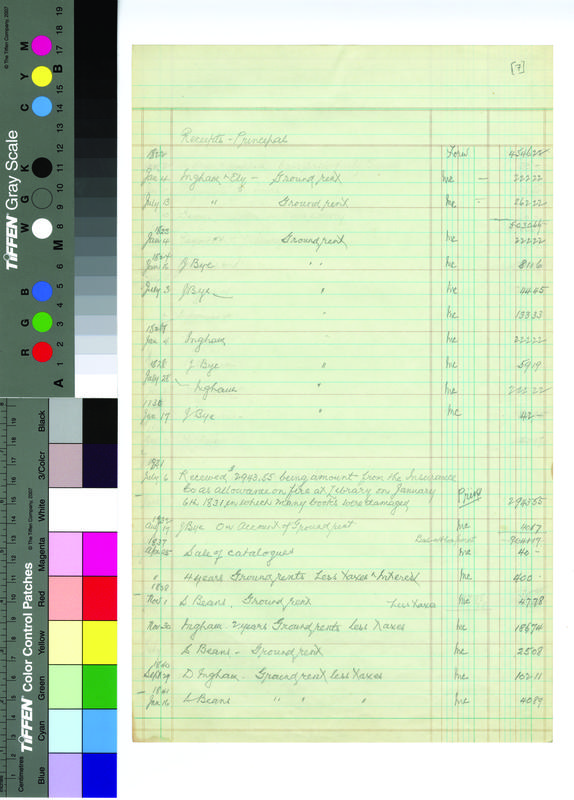 [7]
Receipts - Principal
1822 Forw 4546.22
Jan 4 Ingham & Ely - Ground rent Inc - 22.22
July 13 " Ground rent Inc - 262.22
Jan 4 Ground rent Inc 22.22
Jan 16 J Bye " " Inc 81.16
July 3 J Bye " Inc 44.45
Inc 133.33
Jan 4 Ingham Inc 22.22
1828 J Bye " Inc 59.19
July 28 Ingham " Inc 22.22
Jan 17 J Bye " Inc 42 -
1831
July 6 Received $2943.55 being amount from the Insurance
Co as allowance on fire at Library on January
6th 1831, in which many books were damaged Prin 2943.55
1832
Aug 17 J Bye On Account of Ground rent Inc 40.17
1837
Apr 25 Sale of Catalogues Inc 40 -
" 4 years Ground rents Less Taxes & Interest Inc 400 -
1838
Nov 1 L Beans, Ground rent Less Taxes Inc 47.78
Nov 30 Ingham - 2 years Ground rents less Taxes Inc 186.74
L Beans - Ground rent Inc 25.08
1840
Sept 29 D Ingham - Ground rent less taxes Inc 102.11
1841
Jan 16 L Beans " " " " Inc 40.89
TIFFEN Gray Scale
© The Tiffen Company, 2007
R G B W G K C Y M
A 1 2 3 4 5 6 M 8 9 10 11 12 13 14 15 B 17 18 19
TIFFEN Color Control Patches
© The Tiffen Company, 2007
Centimetres
Blue Cyan Green Yellow Red Magenta White 3/Color Black